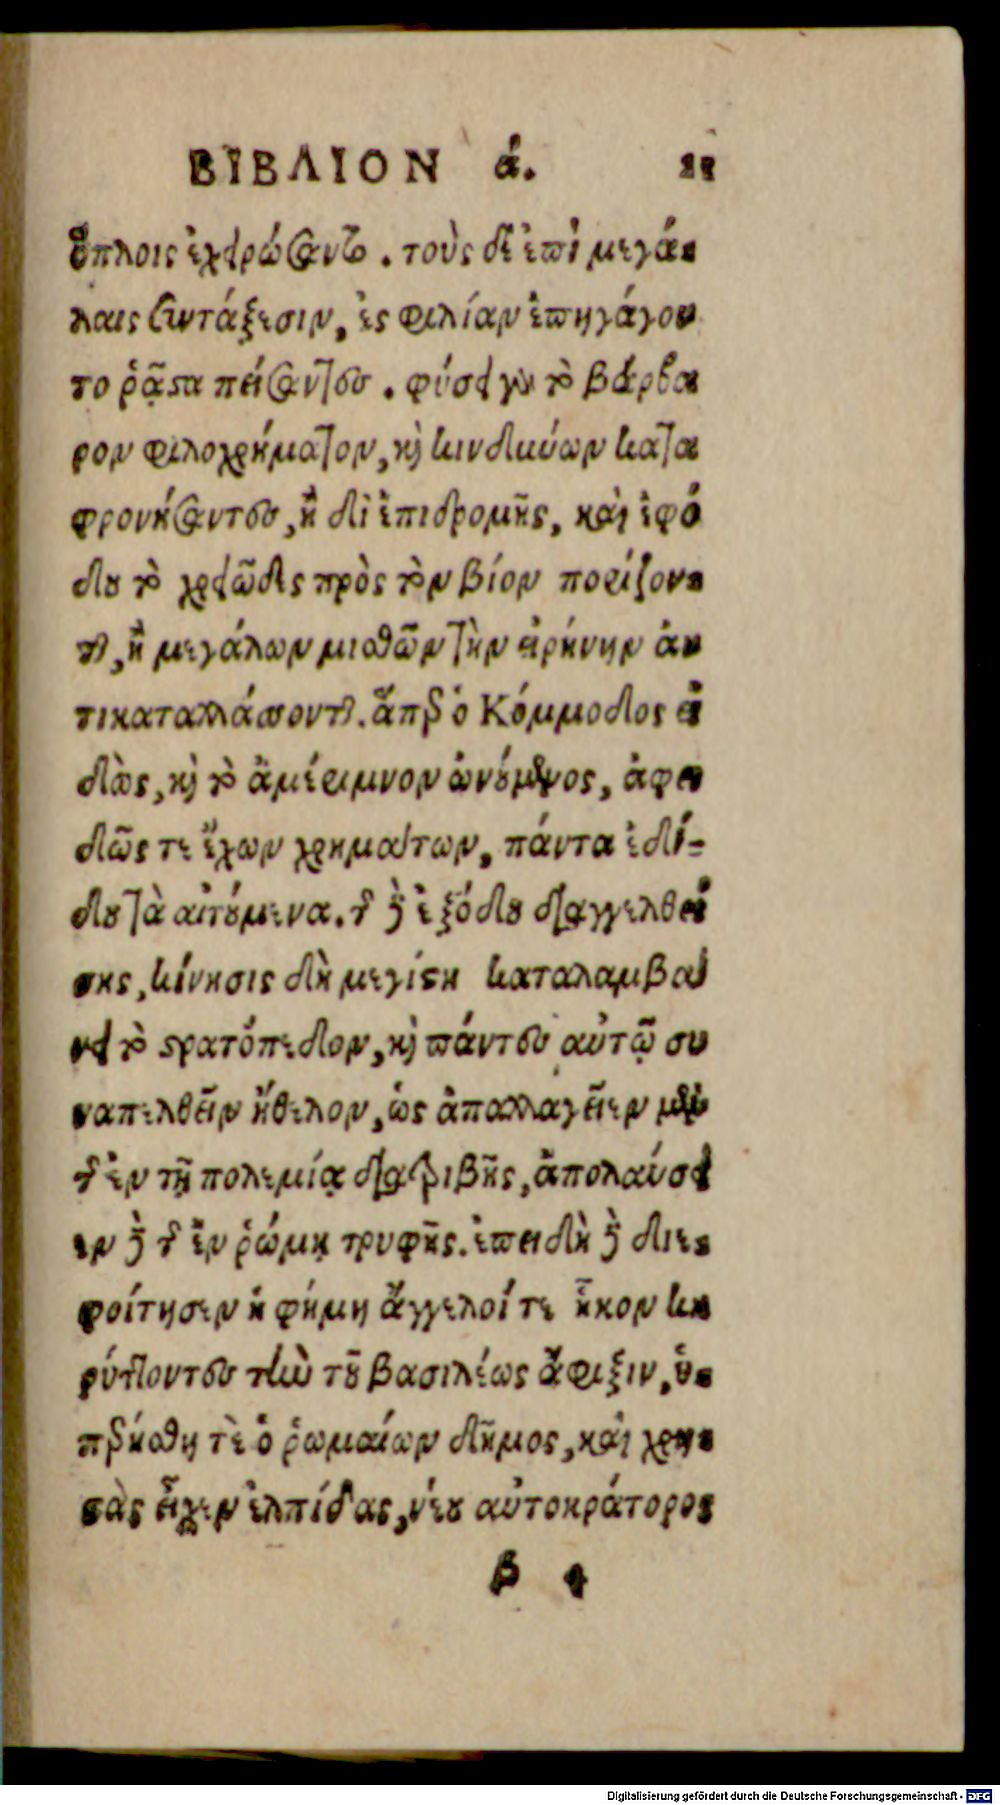 ΒΙΒΛΙΟΝ ά. 11
ὅπλοις ἐχειρώσαντο. τοὺς δὲ ἐπὶ μεγά-
λαις συντάξεσιν, ἐς φιλίαν ἐπηγάγον
το ῥᾷστα πείσαντες. φύσει γὰρ τὸ βάρβα
ρον φιλοχρήματον, καὶ κινδύνων κατα
φρονήσαντες, ἢ δι ἐπιδρομῆς, καὶ ἐφό
δου τὸ χρειῶδες πρὸς τὸν βίον πορίζον-
ται, ἢ μεγάλων μισθῶν τὴν εἰρήνην ἀν
τικαταλλάσσονται. ἅπερ ὁ Κόμμοδος εἰ
δὼς, καὶ τὸ ἀμέριμνον ὠνούμενος, ἀφει
δῶς τε ἔχων χρημάτων, πάντα ἐδί-
δου τὰ αἰτούμενα. τῆς δὲ ἐξόδου διαγγελθεί
σης, κίνησις δὴ μεγίστη καταλαμβά
νει τὸ στρατόπεδον, καὶ πάντες αὐτῷ συ
ναπελθεῖν ἤθελον, ὡς ἀπαλλαγεῖεν μὲν
τῆς ἐν τῇ πολεμίᾳ διατριβῆς, ἀπολαύσει
εν δὲ τῆς ἐν ῥώμῃ τρυφῆς. ἐπειδὴ δὲ διε-
φοίτησεν ἡ φήμη ἄγγελοί τε ἧκον κη
ρύττοντες τὴν τοῦ βασιλέως ἄφιξιν, ὑ-
περήσθη τὲ ὁ ῥωμαίων δῆμος, καὶ χρη-
στὰς εἶχεν ἐλπίδας, νέου αὐτοκράτορος
β